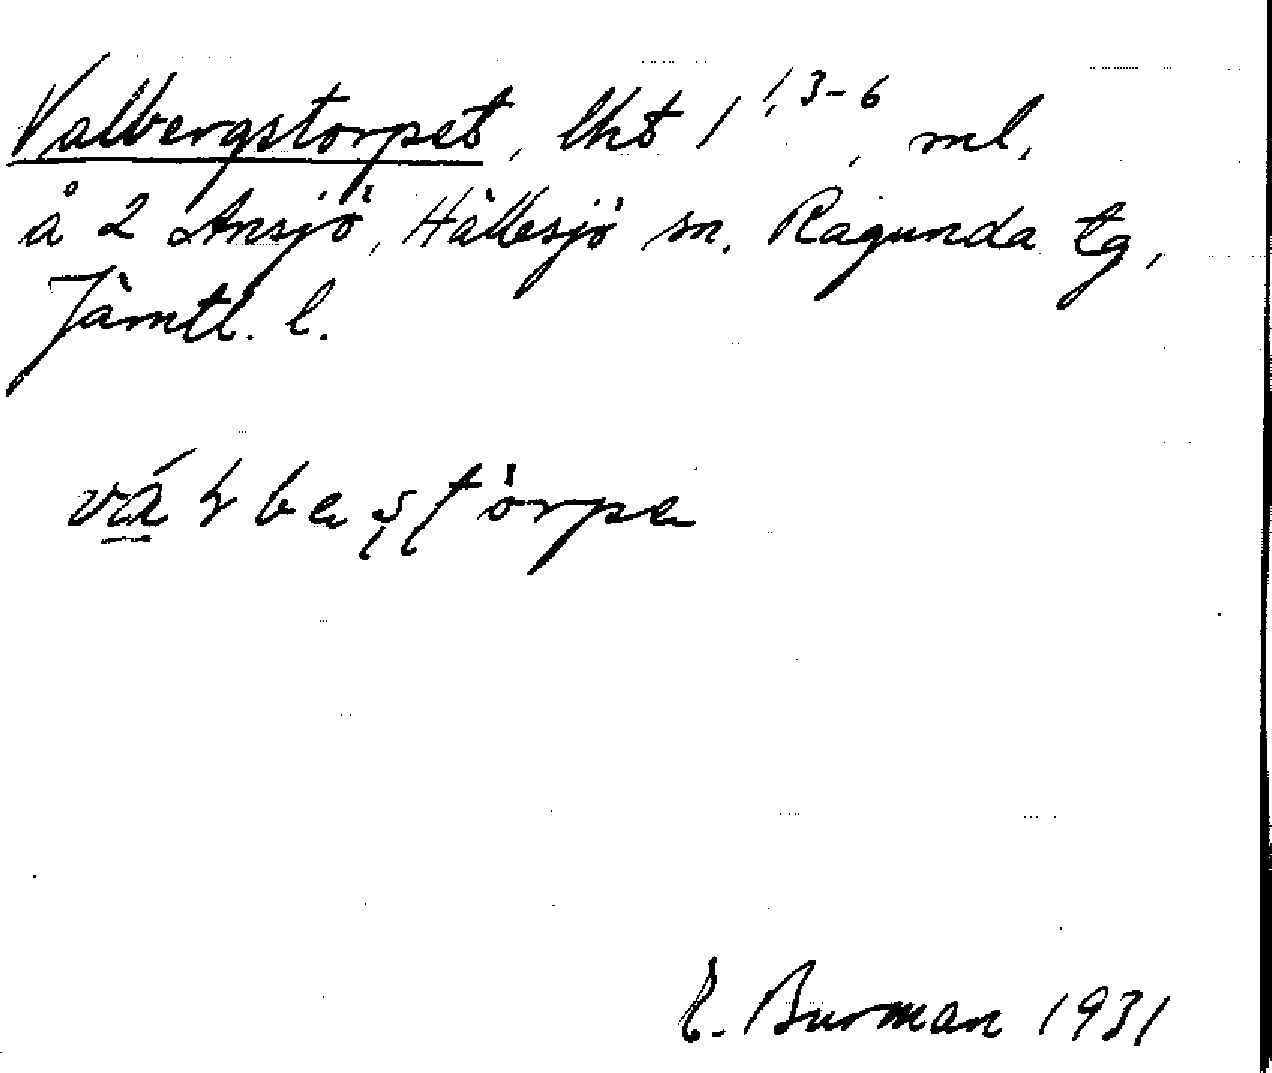 Valbergstorpet, lht 1 1,3-6, ml,
å 2 Ansjö, Hällesjö sn. Ragunda tg,
Jämtl. l.
E. Burman 1931